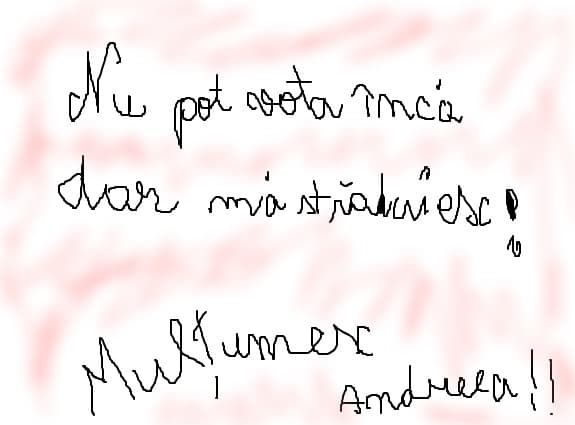 Nu pot vota încă
dar mă străduiesc!
Mulțumesc
Andreea!!